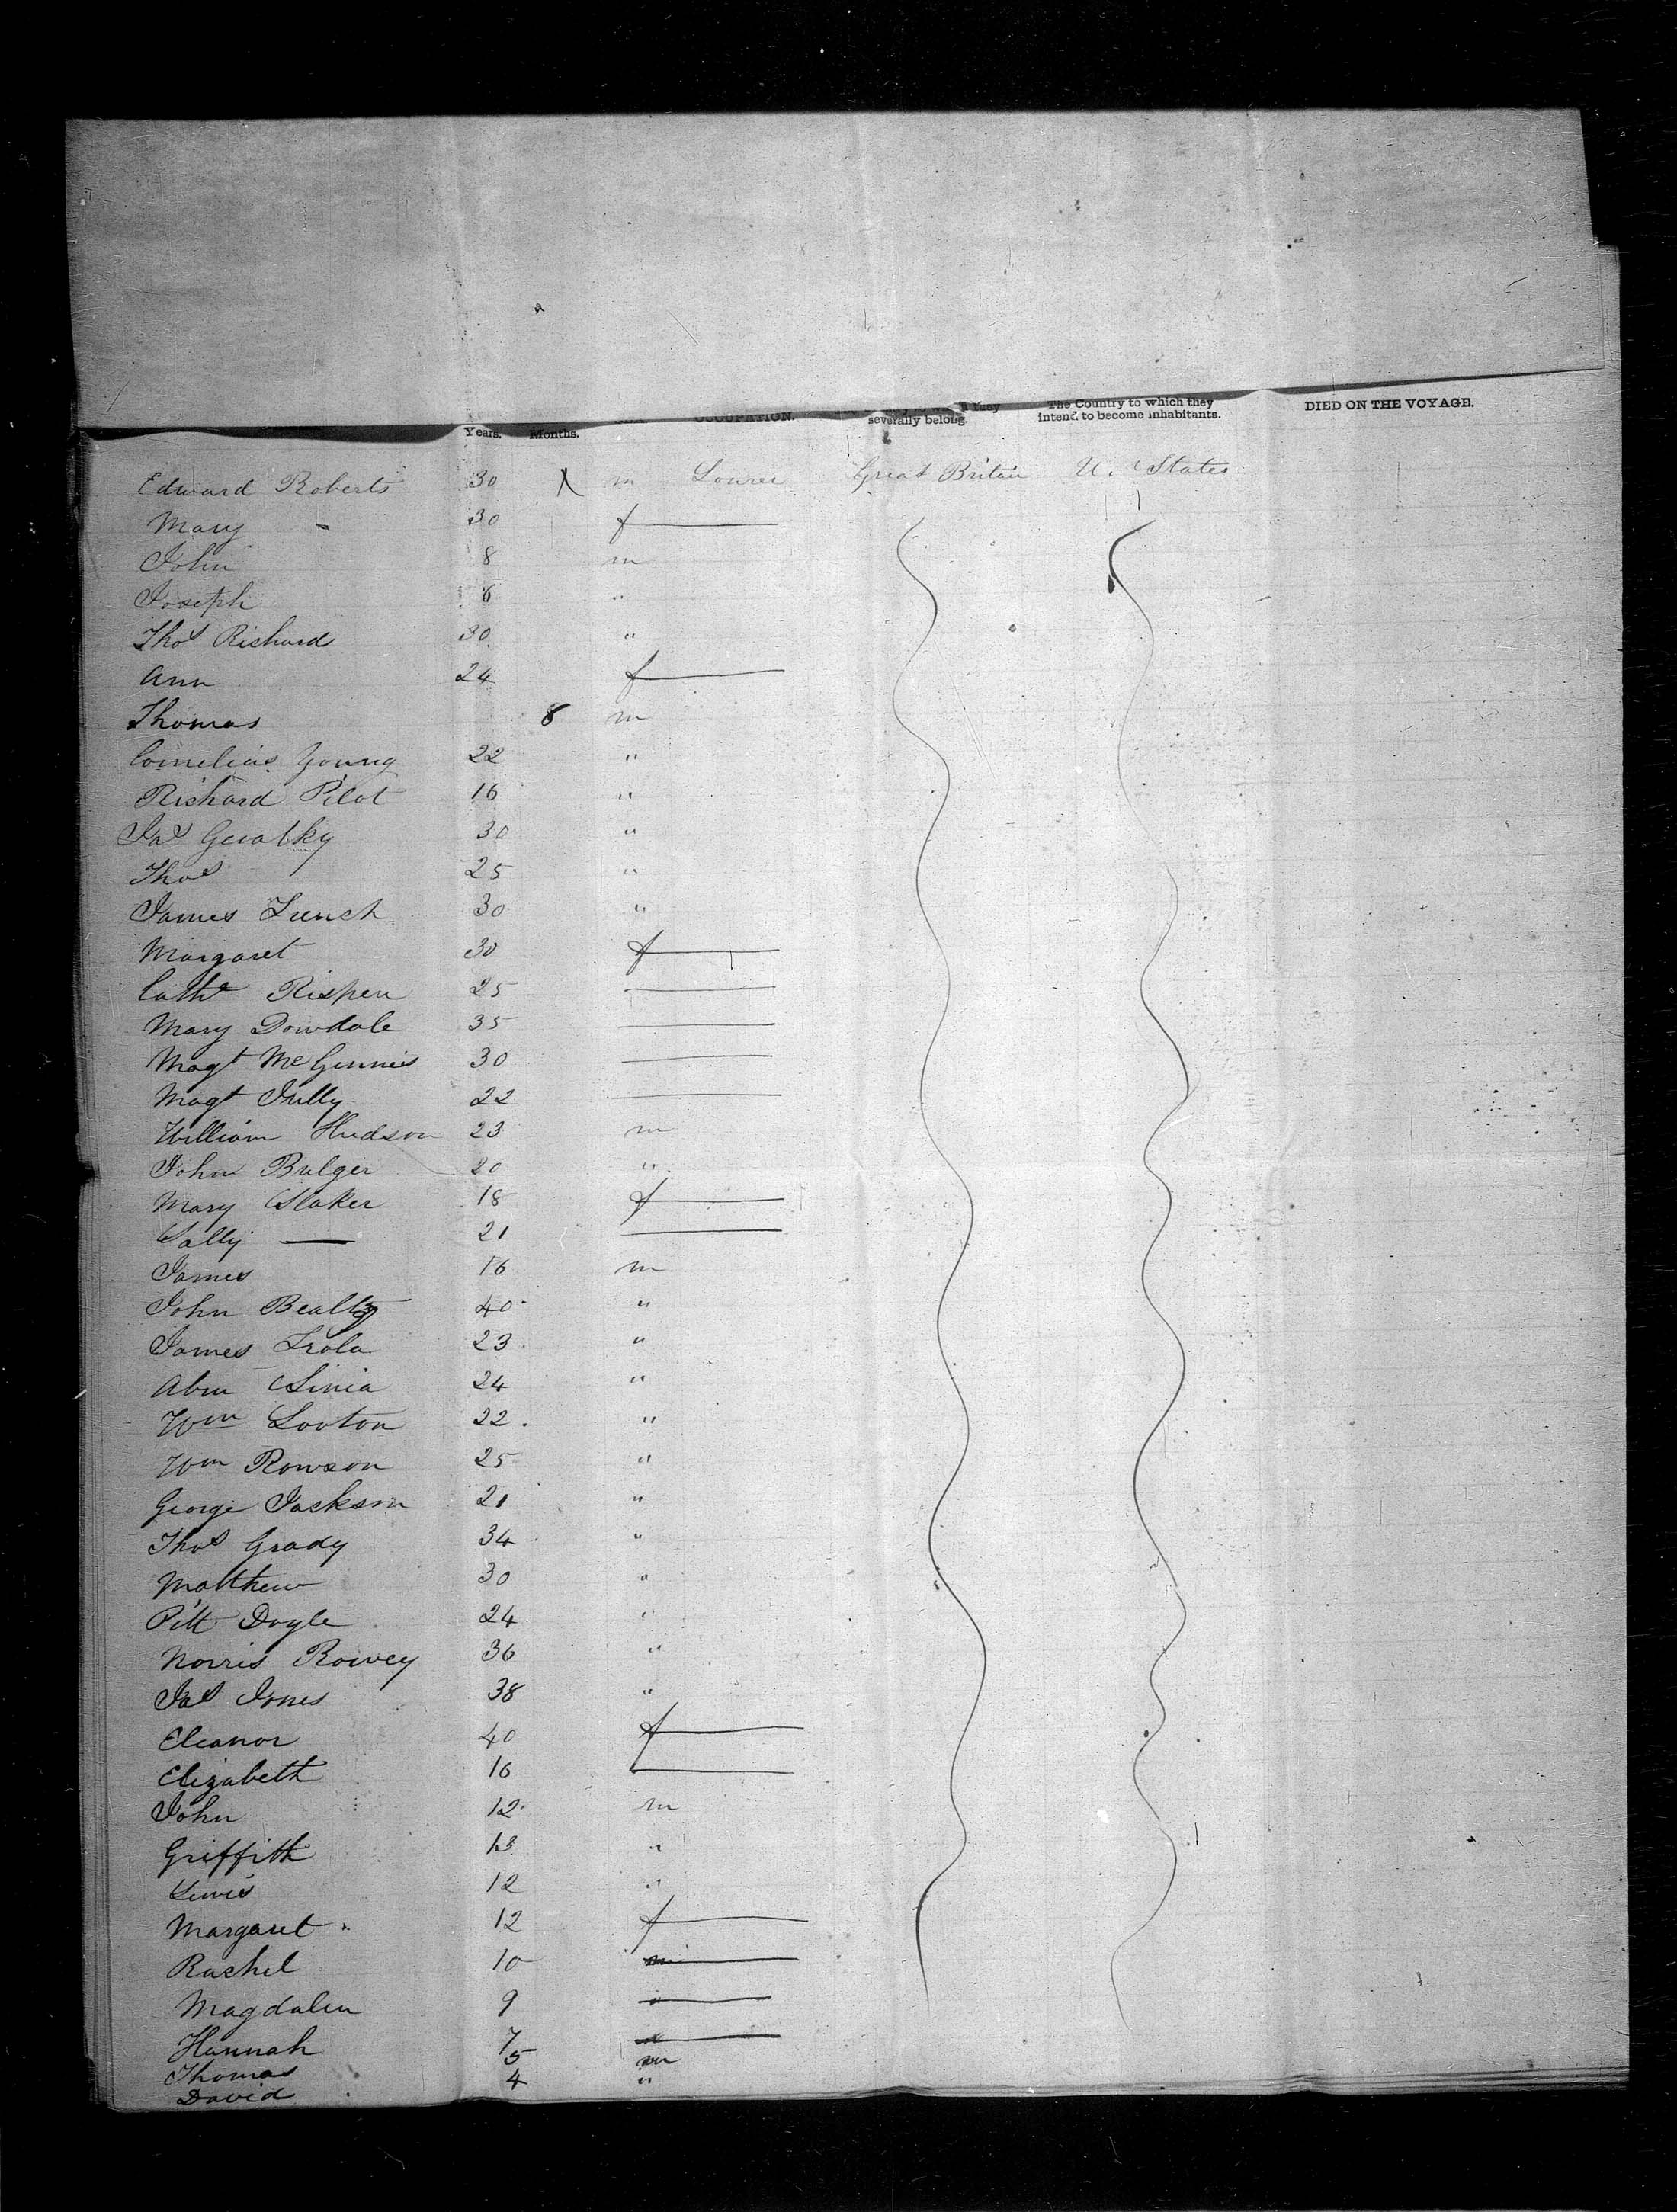 Years. Months. OCCUPATION. they severally belong. The Country to which they intend to become inhabitants. DIED ON THE VOYAGE.
Edward Roberts 30 m Great Britain U. States
Mary " 30 f
John 8 m
Joseph 6 "
Thos Richard 30 "
Ann 24 f
Thomas 8 m
Cornelius Young 22 "
Richard Pilot 16 "
Jas 30 "
Thos 25 "
James 30 "
Margaret 30 f
Cathe Rispen 25
Mary Dowdale 35
Magt McGinnis 30
Magt 22
William Hudson 23 m
John Bulger 20 "
Mary Slaker 18 f
Sally — 21
James 16 m
John 40 "
James 23 "
Abm 24 "
Wm Looton 22 "
Wm Rowson 25 "
George Jackson 21 "
Thos Grady 34 "
Matthew 30 "
Doyle 24 "
Norris 36 "
Jas Jones 38 "
Eleanor 40 f
Elizabeth 16
John 12 m
Griffith 13 "
Lewis 12 "
Margaret 12 f
Rachel 10
Magdalen 9
Hannah 7
Thomas 5 m
David 4 "